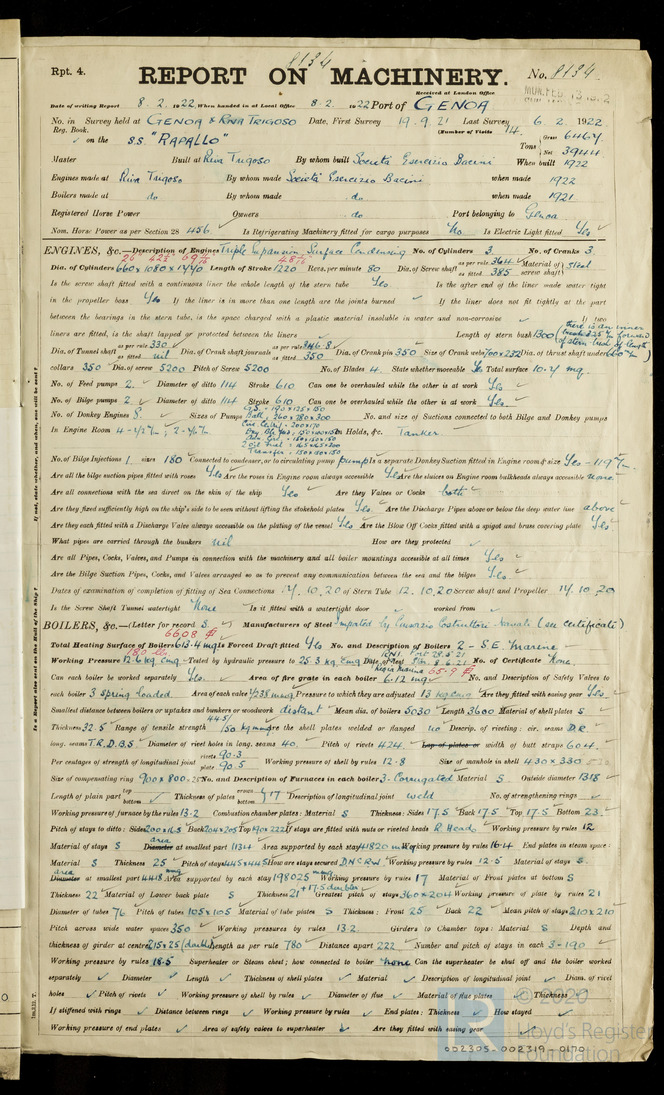 8134
Rpt. 4. REPORT ON MACHINERY. No. 8134.
Received at London Office MON. FEB. 13 1922
Date of writing Report 8.2.1922 When handed in at Local Office 8.2.1922 Port of GENOA
No. in Survey held at GENOA & RIVA TRIGOSO Date, First Survey 19.9.21 Last Survey 6.2.1922
Reg. Book. (Number of Visits 14.)
on the S.S. "RAPALLO" Tons Gross 6467 Net 3944
Master Built at Riva Trigoso By whom built Società Esercizio Bacini When built 1922
Engines made at Riva Trigoso By whom made Società Esercizio Bacini when made 1922
Boilers made at do By whom made do when made 1921
Registered Horse Power Owners do Port belonging to Genoa
Nom. Horse Power as per Section 28 456. Is Refrigerating Machinery fitted for cargo purposes No Is Electric Light fitted Yes
ENGINES, &c.—Description of Engines Triple Expansion Surface Condensing No. of Cylinders 3 No. of Cranks 3
Dia. of Cylinders 660 x 1080 x 1770 Length of Stroke 1220 Revs. per minute 80 Dia. of Screw shaft as per rule 364 as fitted 385 Material of screw shaft Steel
Is the screw shaft fitted with a continuous liner the whole length of the stern tube Yes Is the after end of the liner made water tight
in the propeller boss Yes If the liner is in more than one length are the joints burned If the liner does not fit tightly at the part
between the bearings in the stern tube, is the space charged with a plastic material insoluble in water and non-corrosive If two
liners are fitted, is the shaft lapped or protected between the liners Length of stern bush 1300
Dia. of Tunnel shaft as per rule 330 as fitted nil Dia. of Crank shaft journals as per rule 346.8 as fitted 350 Dia. of Crank pin 350 Size of Crank webs 700x232 Dia. of thrust shaft under
collars 350 Dia. of screw 5200 Pitch of Screw 5200 No. of Blades 4 State whether moveable Total surface 10.7 mq.
No. of Feed pumps 2 Diameter of ditto 114 Stroke 610 Can one be overhauled while the other is at work Yes
No. of Bilge pumps 2 Diameter of ditto 114 Stroke 610 Can one be overhauled while the other is at work Yes
No. of Donkey Engines 8 Sizes of Pumps No. and size of Suctions connected to both Bilge and Donkey pumps
In Engine Room In Holds, &c. Tanker
No. of Bilge Injections 1 sizes 180 Connected to condenser, or to circulating pump pump Is a separate Donkey Suction fitted in Engine room & size Yes
Are all the bilge suction pipes fitted with roses Yes Are the roses in Engine room always accessible Yes Are the sluices on Engine room bulkheads always accessible none
Are all connections with the sea direct on the skin of the ship Yes Are they Valves or Cocks both
Are they fixed sufficiently high on the ship's side to be seen without lifting the stokehold plates Yes Are the Discharge Pipes above or below the deep water line above
Are they each fitted with a Discharge Valve always accessible on the plating of the vessel Yes Are the Blow Off Cocks fitted with a spigot and brass covering plate Yes
What pipes are carried through the bunkers nil How are they protected
Are all Pipes, Cocks, Valves, and Pumps in connection with the machinery and all boiler mountings accessible at all times Yes
Are the Bilge Suction Pipes, Cocks, and Valves arranged so as to prevent any communication between the sea and the bilges Yes
Dates of examination of completion of fitting of Sea Connections 14.10.20 of Stern Tube 12.10.20 Screw shaft and Propeller 14.10.20
Is the Screw Shaft Tunnel watertight None Is it fitted with a watertight door worked from
BOILERS, &c.—(Letter for record S) Manufacturers of Steel Imported by Consorzio Costruttori Navali (see certificate)
6608
Total Heating Surface of Boilers 613.4 mq Is Forced Draft fitted Yes No. and Description of Boilers 2 - S.E. Marine
Working Pressure 12.6 kg cmq Tested by hydraulic pressure to 25.3 kg cmq Date of test No. of Certificate None
Can each boiler be worked separately Yes Area of fire grate in each boiler 6.12 mq No. and Description of Safety Valves to
each boiler 3 Spring loaded Area of each valve Pressure to which they are adjusted 13 kg cmq Are they fitted with easing gear Yes
Smallest distance between boilers or uptakes and bunkers or woodwork distant Mean dia. of boilers 5030 Length 3600 Material of shell plates S
Thickness 32.5 Range of tensile strength 44.5/50 kg mmq Are the shell plates welded or flanged no Descrip. of riveting: cir. seams D.R.
long. seams T.R.D.B.S. Diameter of rivet holes in long. seams 40 Pitch of rivets 424 Lap of plates or width of butt straps 604
Per centages of strength of longitudinal joint rivets 90.3 plate 90.5 Working pressure of shell by rules 12.8 Size of manhole in shell 430 x 330
Size of compensating ring 900 x 800 x 25 No. and Description of Furnaces in each boiler 3 - Corrugated Material S Outside diameter 1318
Length of plain part top bottom Thickness of plates crown bottom 17 Description of longitudinal joint weld No. of strengthening rings
Working pressure of furnace by the rules 13.2 Combustion chamber plates: Material S Thickness: Sides 17.5 Back 17.5 Top 17.5 Bottom 23
Pitch of stays to ditto: Sides Back 204x205 Top 190x222 If stays are fitted with nuts or riveted heads R Heads Working pressure by rules 12
Material of stays S area Diameter at smallest part 1134 Area supported by each stay 41820 mmq Working pressure by rules 16.4 End plates in steam space:
Material S Thickness 25 Pitch of stays 445x445 How are stays secured D.N.C.R.W. Working pressure by rules 12.5 Material of stays S
area Diameter at smallest part 4418 Area supported by each stay 198025 mmq Working pressure by rules 17 Material of Front plates at bottom S
Thickness 22 Material of Lower back plate S Thickness 21 + 17.5 doubler Greatest pitch of stays 360 x 204 Working pressure of plate by rules 21
Diameter of tubes 76 Pitch of tubes 105x105 Material of tube plates S Thickness: Front 25 Back 22 Mean pitch of stays 210x210
Pitch across wide water spaces 350 Working pressures by rules 13.2 Girders to Chamber tops: Material S Depth and
thickness of girder at centre 215x25 (double) Length as per rule 780 Distance apart 222 Number and pitch of stays in each 3-190
Working pressure by rules 18.5 Superheater or Steam chest; how connected to boiler none Can the superheater be shut off and the boiler worked
separately Diameter Length Thickness of shell plates Material Description of longitudinal joint Diam. of rivet
holes Pitch of rivets Working pressure of shell by rules Diameter of flue Material of flue plates Thickness
If stiffened with rings Distance between rings Working pressure by rules End plates: Thickness How stayed
Working pressure of end plates Area of safety valves to superheater Are they fitted with easing gear
© 2020
Lloyd's Register
Foundation
002305-002319-0170